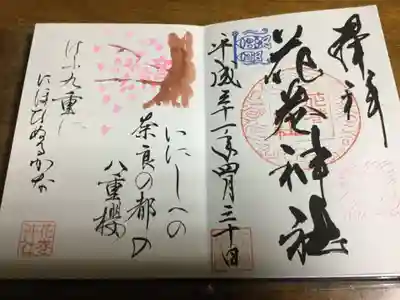 奉拝
花巻神社
平成三十一年四月三十日
いにしへの
奈良の都の
八重櫻
けふ九重に
にほひぬるかな